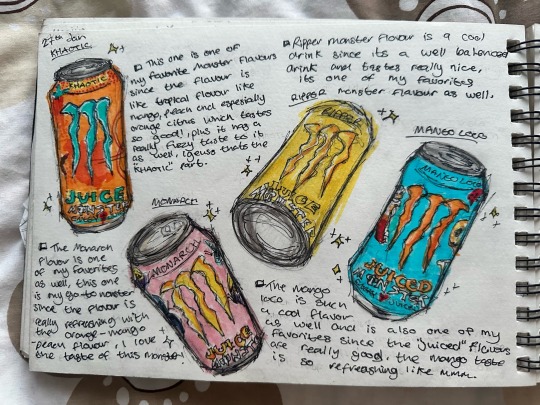 27th Jan
KHAOTIC
This one is one of
my favorite Monster flavours
since the flavour is
like tropical flavour like
mango, peach and especially
orange citrus which tastes
so good! plus it has a
really fizzy taste to it
as well, I guess thats the
"KHAOTIC" part.
KHAOTIC
JUICE
MONSTER
Ripper monster flavour is a cool
drink since its a well balanced
drink and tastes really nice,
its one of my favorites
as well.
RIPPER monster flavour
RIPPER
JUICE
MONSTER
MANGO LOCO
MANGO LOCO
JUICED
MONSTER
MONARCH
MONARCH
JUICED
MONSTER
The Monarch
flavor is one
of my favorites
as well, this one
is my go-to monster
since the flavor is
really refreshing with
the orange-mango
peach flavour, I love
the taste of this monster!
The mango
loco is such
a cool flavor
as well and is also one of my
favorites since the "juiced" flavours
are really good, the mango taste
is so refreshing like mmm.